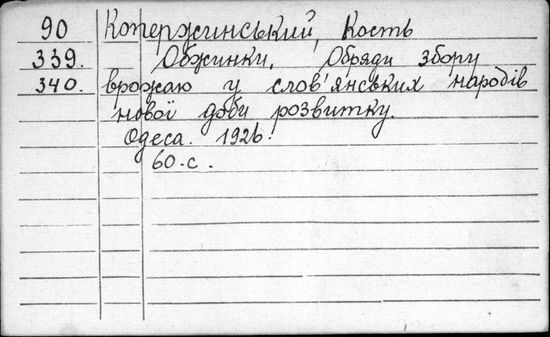 90 Копержинський, Кость
339. Обжинки. Обряди збору
340. врожаю у слов'янських народів
нової доби розвитку.
Одеса. 1926.
60.с.